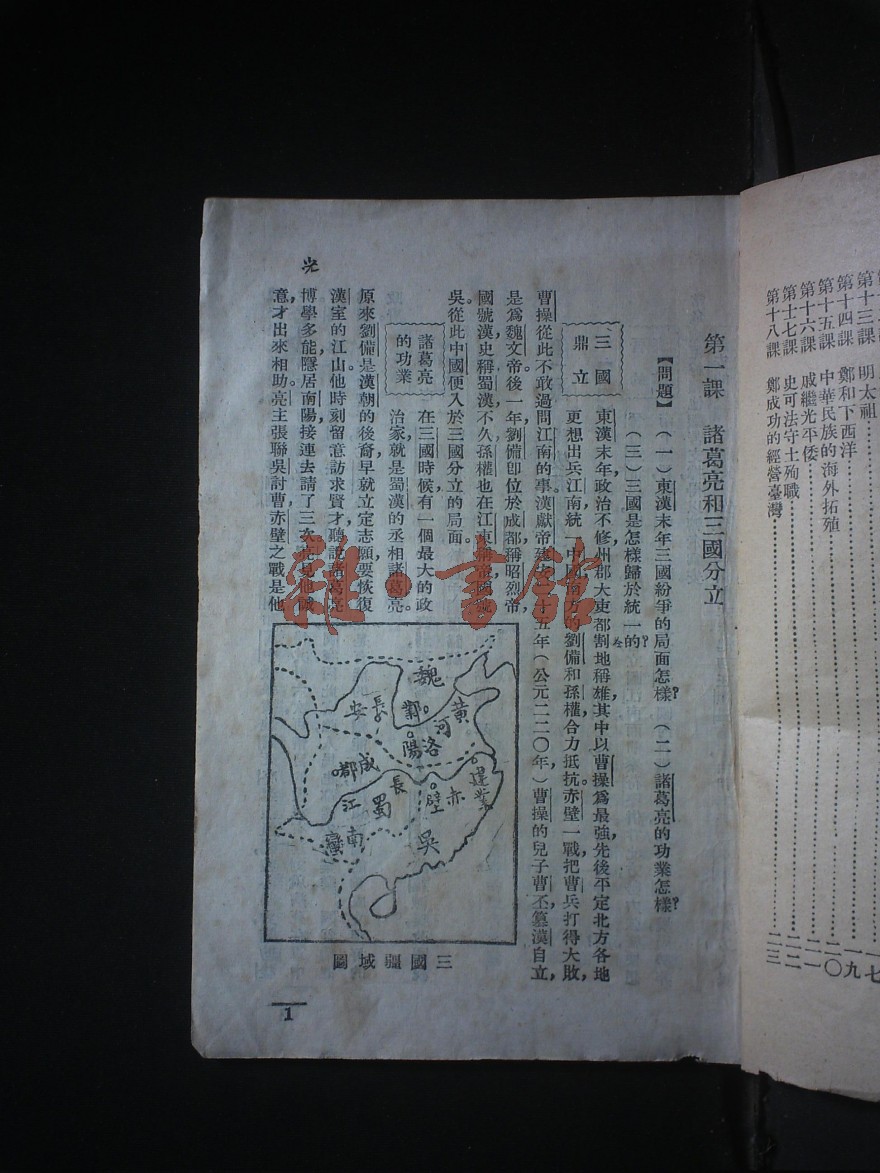 第十三課　明太祖
第十四課　鄭和下西洋
第十五課　中華民族的海外拓殖
第十六課　戚繼光平倭
第十七課　史可法守土殉職
第十八課　鄭成功的經營臺灣
第一課　諸葛亮和三國分立
【問題】（一）東漢末年三國紛爭的局面怎樣？（二）諸葛亮的功業怎樣？
（三）三國是怎樣歸於統一的？
三國鼎立
東漢末年，政治不修，州郡大吏，都割地稱雄，其中以曹操為最強，先後平定北方各地，
更想出兵江南，統一中國。南方的劉備和孫權合力抵抗，赤壁一戰，把曹兵打得大敗，
曹操從此不敢過問江南的事。漢獻帝建安二十五年（公元二二〇年）曹操的兒子曹丕篡漢自立，
是為魏文帝。後一年，劉備卽位於成都，稱昭烈帝，
國號漢，史稱蜀漢。不久孫權也在江東稱帝，國號
吳。從此中國便入於三國分立的局面。
諸葛亮的功業
在三國時候，有一個最大的政
治家，就是蜀漢的丞相諸葛亮。
原來劉備是漢朝的後裔，早就立定志願，要恢復
漢室的江山。他時刻留意訪求賢才，聽說諸葛亮
博學多能，隱居南陽，接連去請了三次。亮見他誠
意，才出來相助。亮主張聯吳討曹，赤壁之戰，是他
魏
長安
鄴
黃河
洛陽
成都
長江
蜀
赤壁
建業
吳
南蠻
三國疆域圖
1
雜·書館